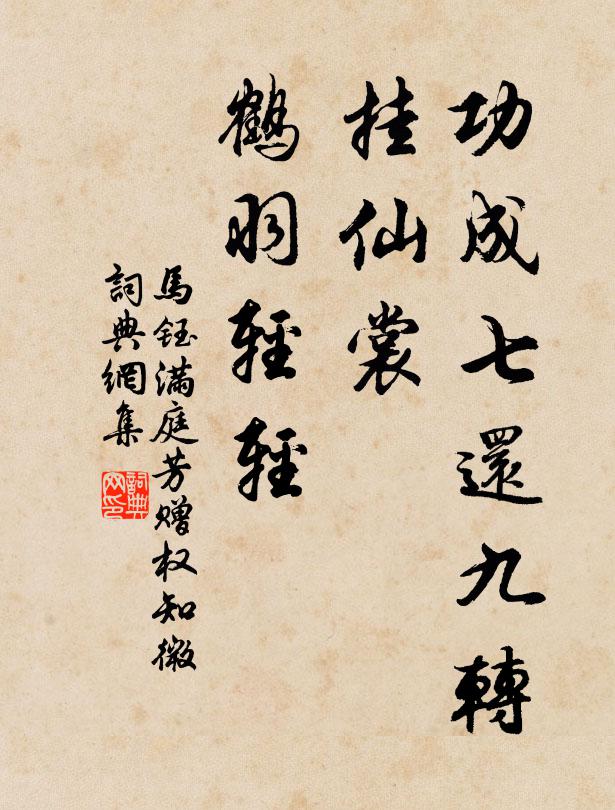 功成七還九轉
挂仙裳
鶴羽輕輕
馬鈺滿庭芳赠权知微
詞典網集
詞典網印